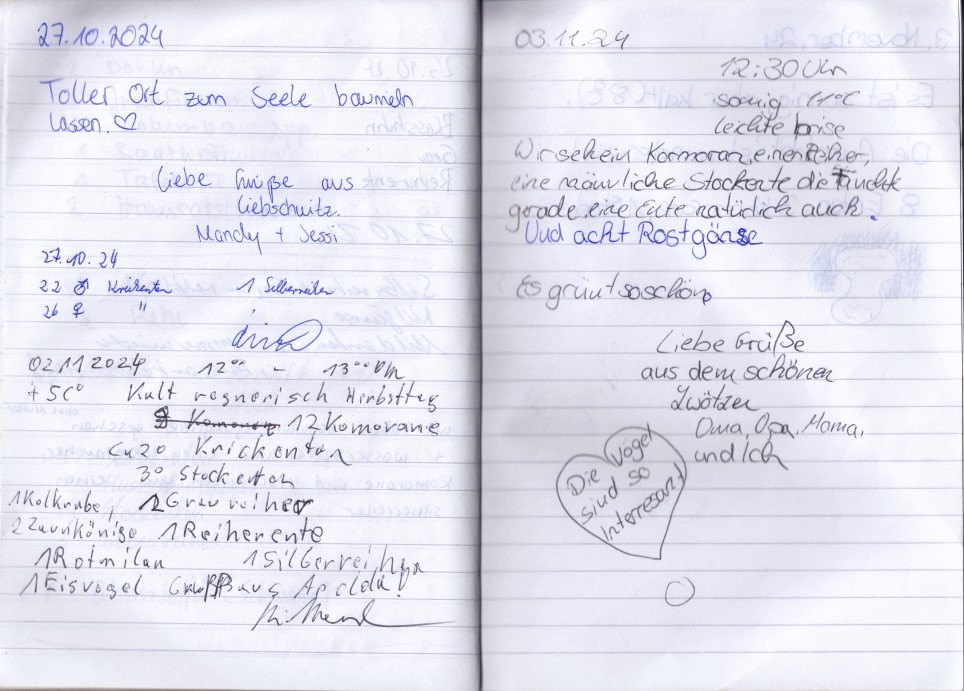 27.10.2024
Toller Ort zum Seele baumeln
lassen. ♡
Liebe Grüße aus
Liebschwitz.
Mandy + Jessi
27.10.24
22 ♂ Krickenten 1 Silberreiher
26 ♀ "
02 11 2024 12°° - 13°° Uhr
+ 5C° Kalt regnerisch Herbsttag
12 Komorane
Ca 20 Krickenten
30 Stockenten
1 Kolkrabe, 2 Graureiher
2 Zaunkönige 1 Reiherente
1 Rotmilan 1 Silberreiher
1 Eisvogel Gruß aus Apolda!
03.11.24
12:30 Uhr
sonnig 11°C
leichte brise
Wir sehein Kormoran, einen Reiher,
eine männliche Stockente die Taucht
gerade, eine Ente natürlich auch.
Und acht Rostgänse
Es grünt so schön
Liebe Grüße
aus dem schönen
Zwötzen
Oma, Opa, Mama,
und Ich
Die Vögel
sind so
Interresant!